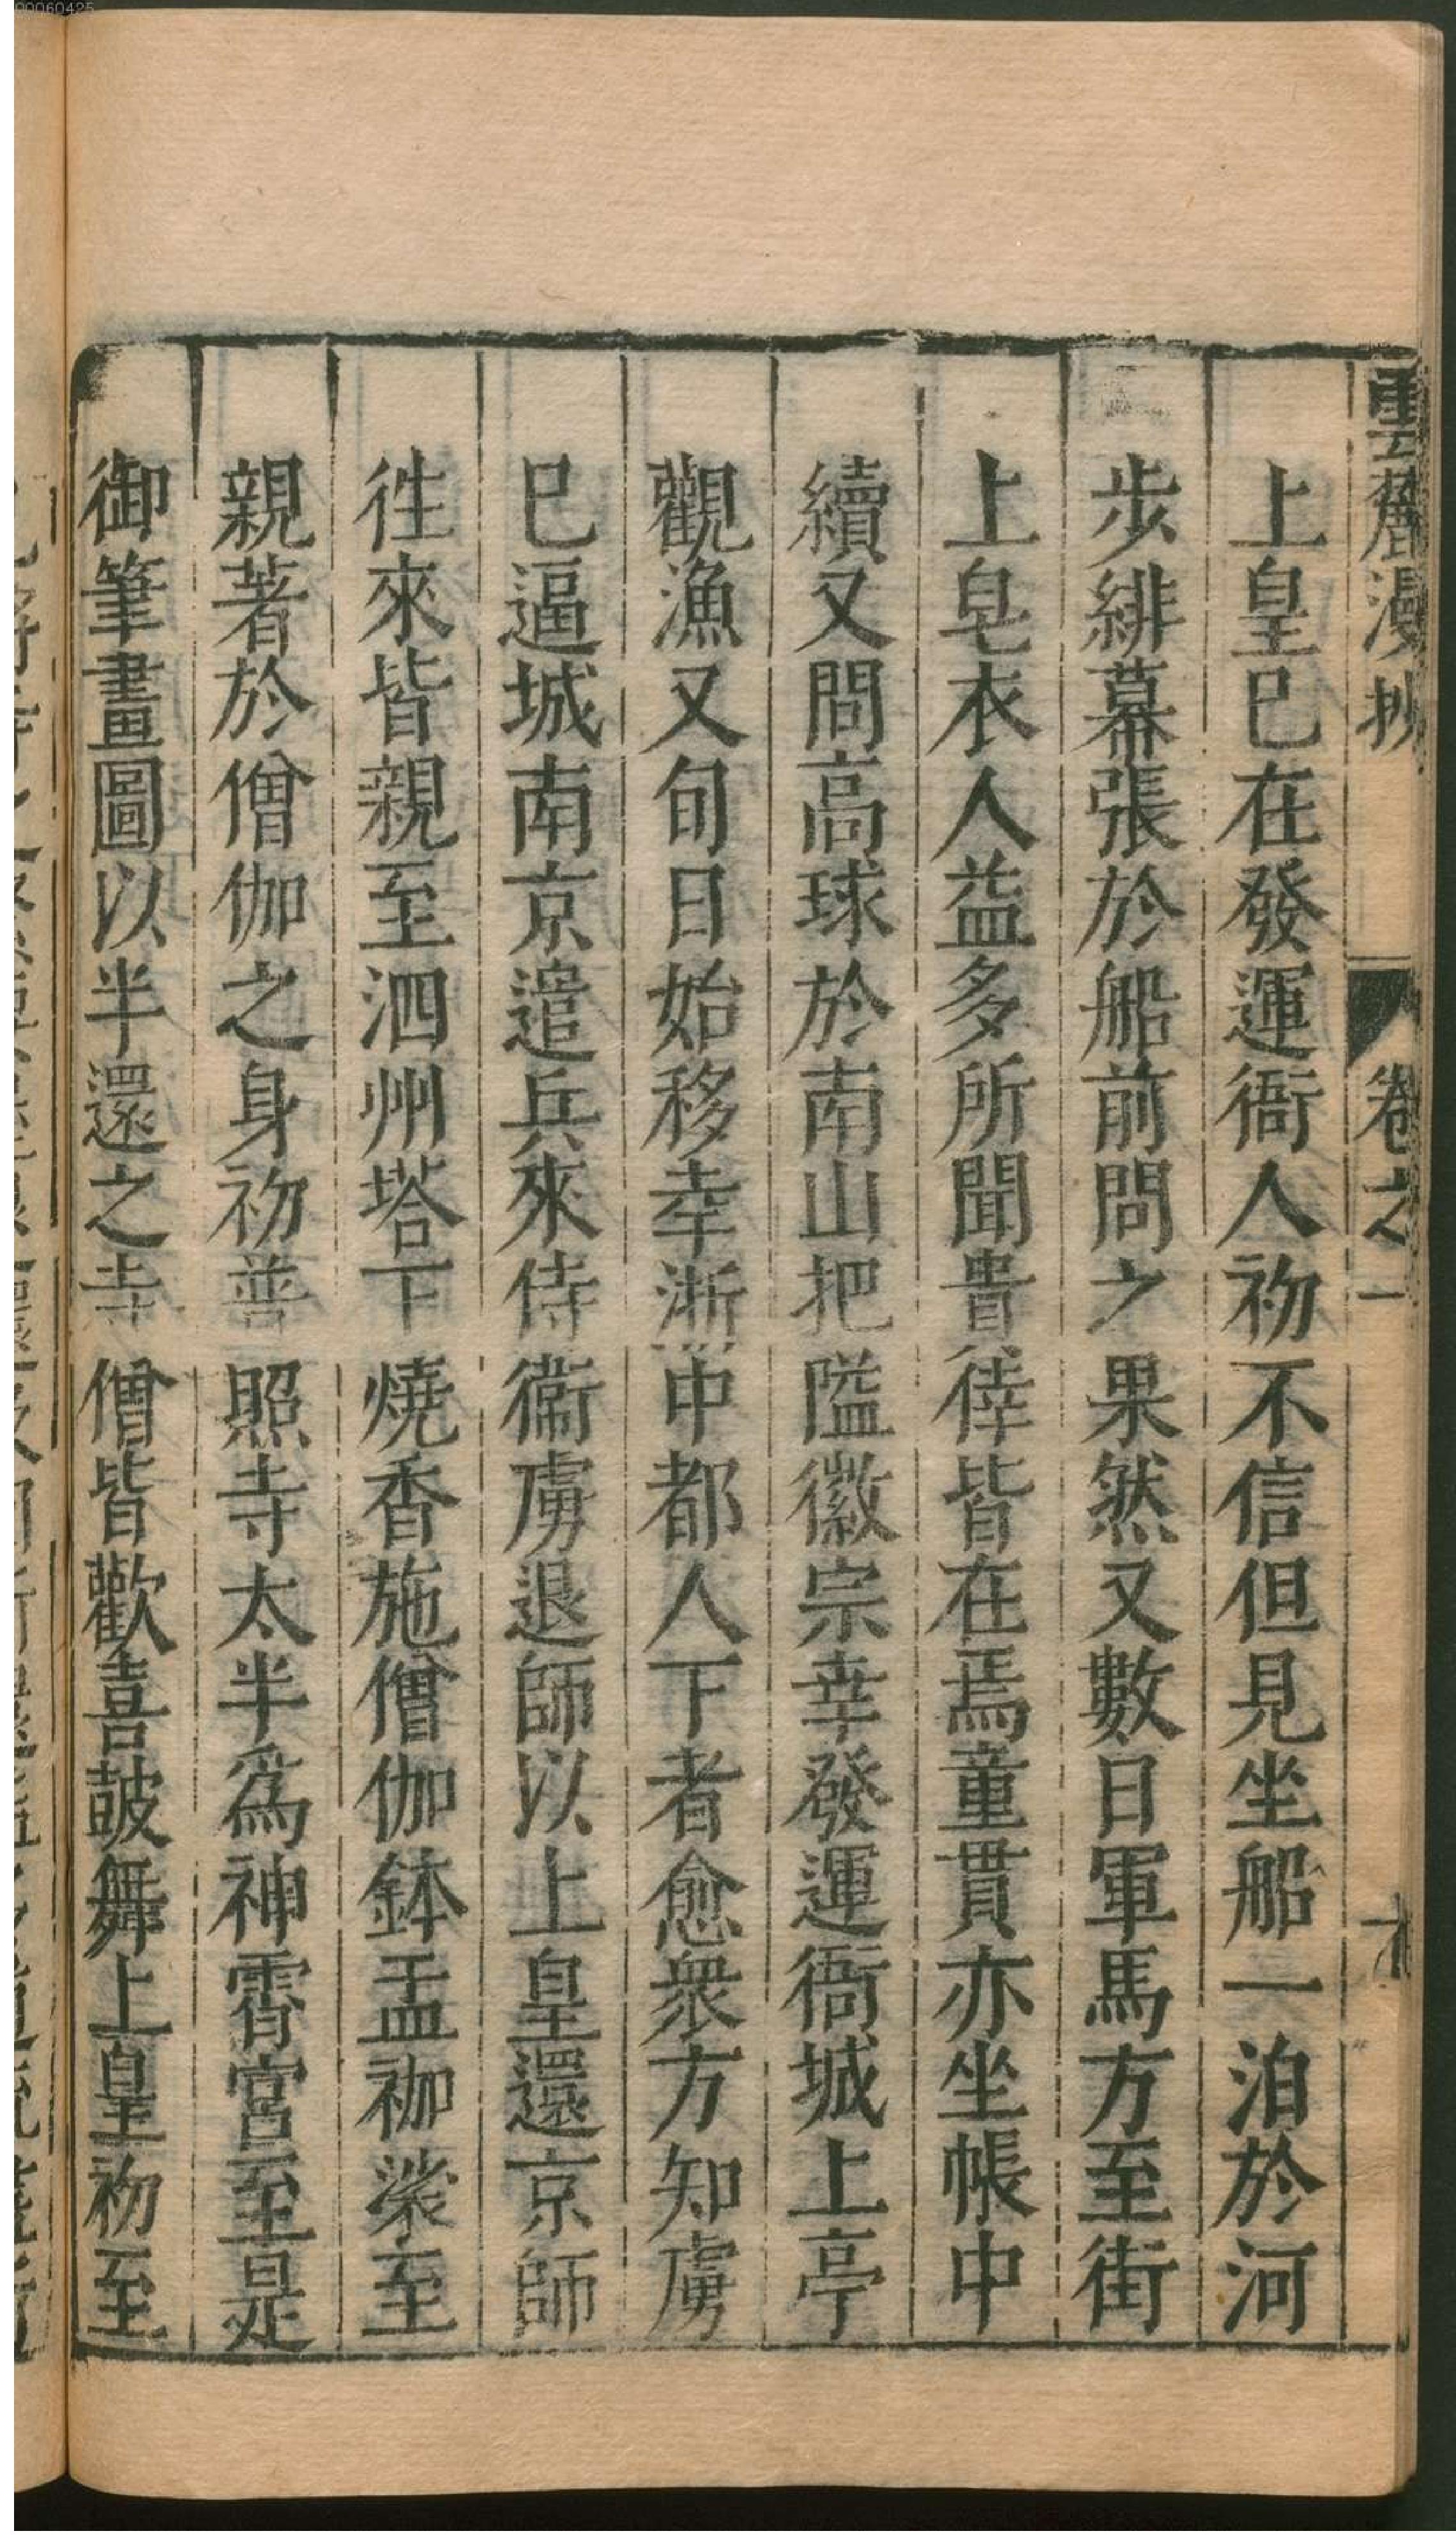 雲麓漫抄 卷之一
上皇已在發運衙人初不信但見坐船一泊於河
步緋幕張於船前問之果然又數日軍馬方至街
上皂衣人益多所聞貴倖皆在焉童貫亦坐帳中
續又問高球於南山把隘徽宗幸發運衙城上亭
觀漁又旬日始移幸浙中都人下者愈衆方知虜
已逼城南京遣兵來侍衞虜退師以上皇還京師
徃來皆親至泗州塔下燒香施僧伽鉢盂袈裟至
親著於僧伽之身初普照寺太半爲神霄宮至是
御筆畫圖以半還之寺僧皆歡喜鼓舞上皇初至
00060425